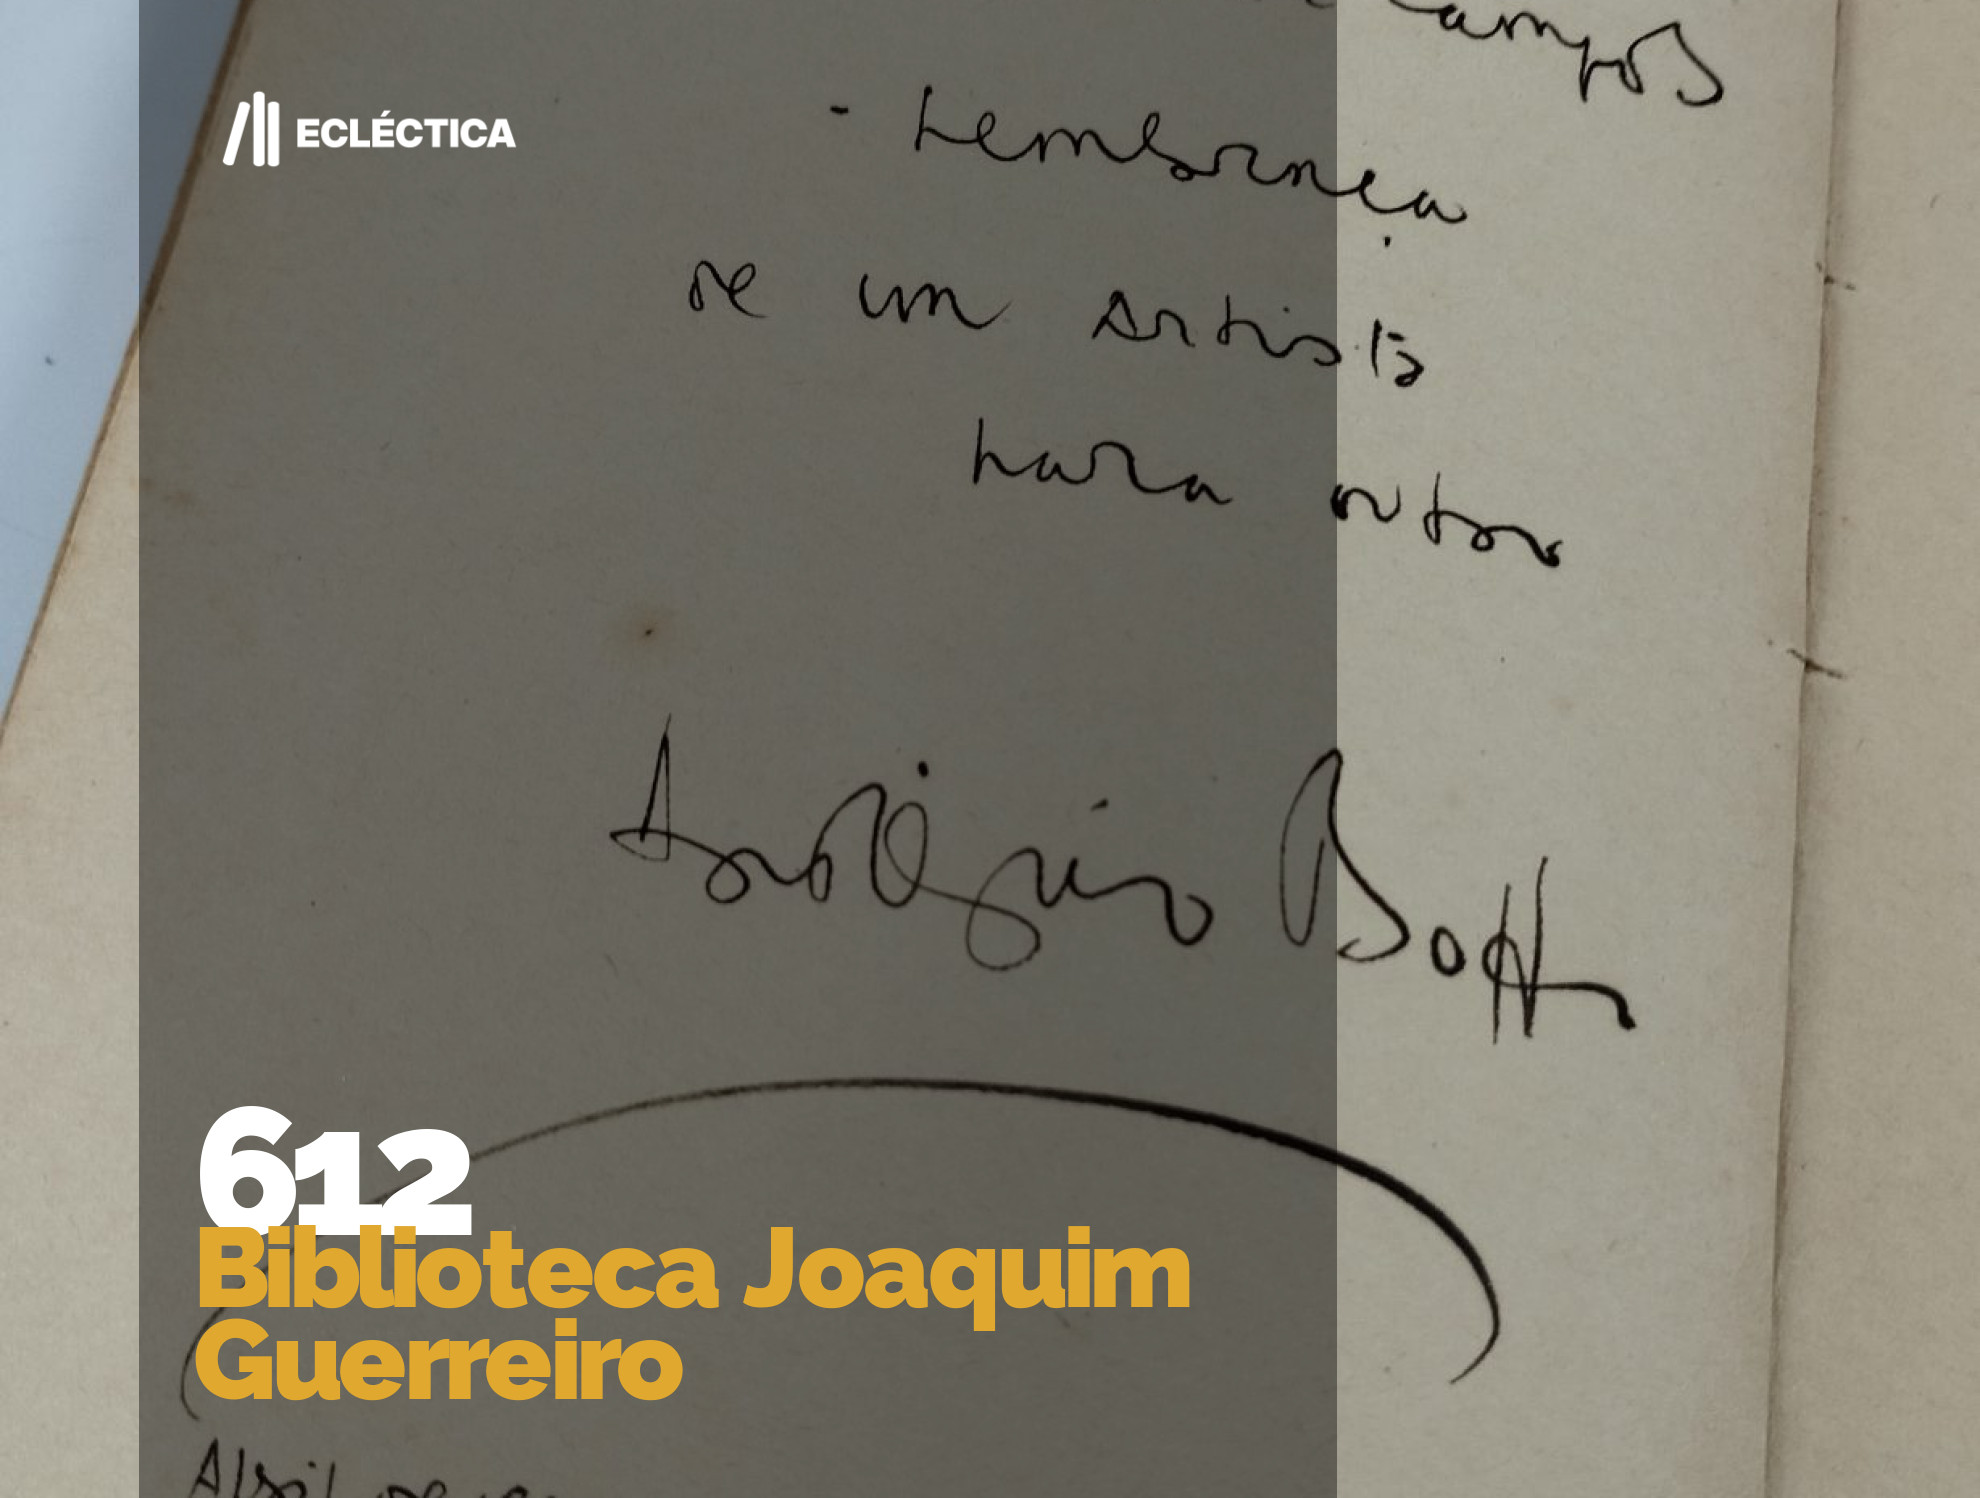 Campos
ECLÉCTICA
- Lembrança
de um artista
para outro
António Botto
612
Biblioteca Joaquim
Guerreiro
Abril de